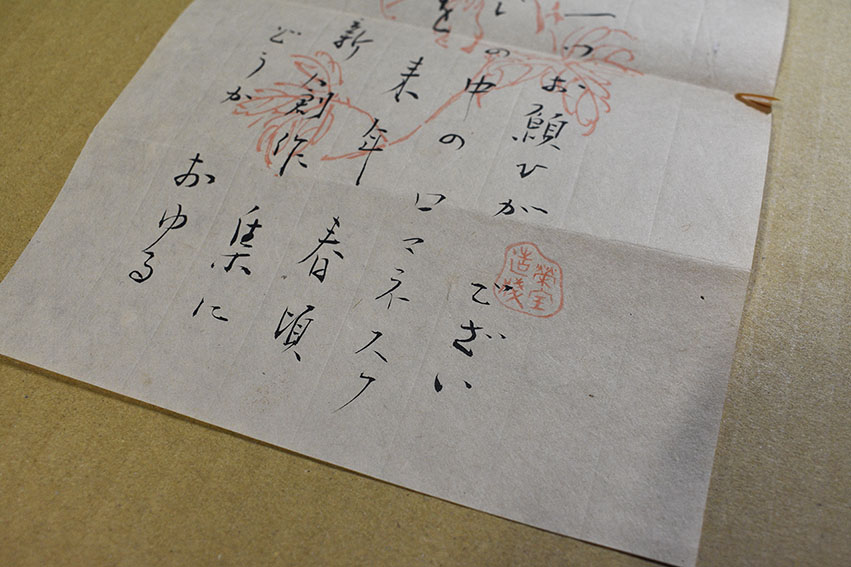 一つお願ひがござい
の中のロマネスク
を来年春頃
新創作集に
どうかおゆる
榮宝
造箋